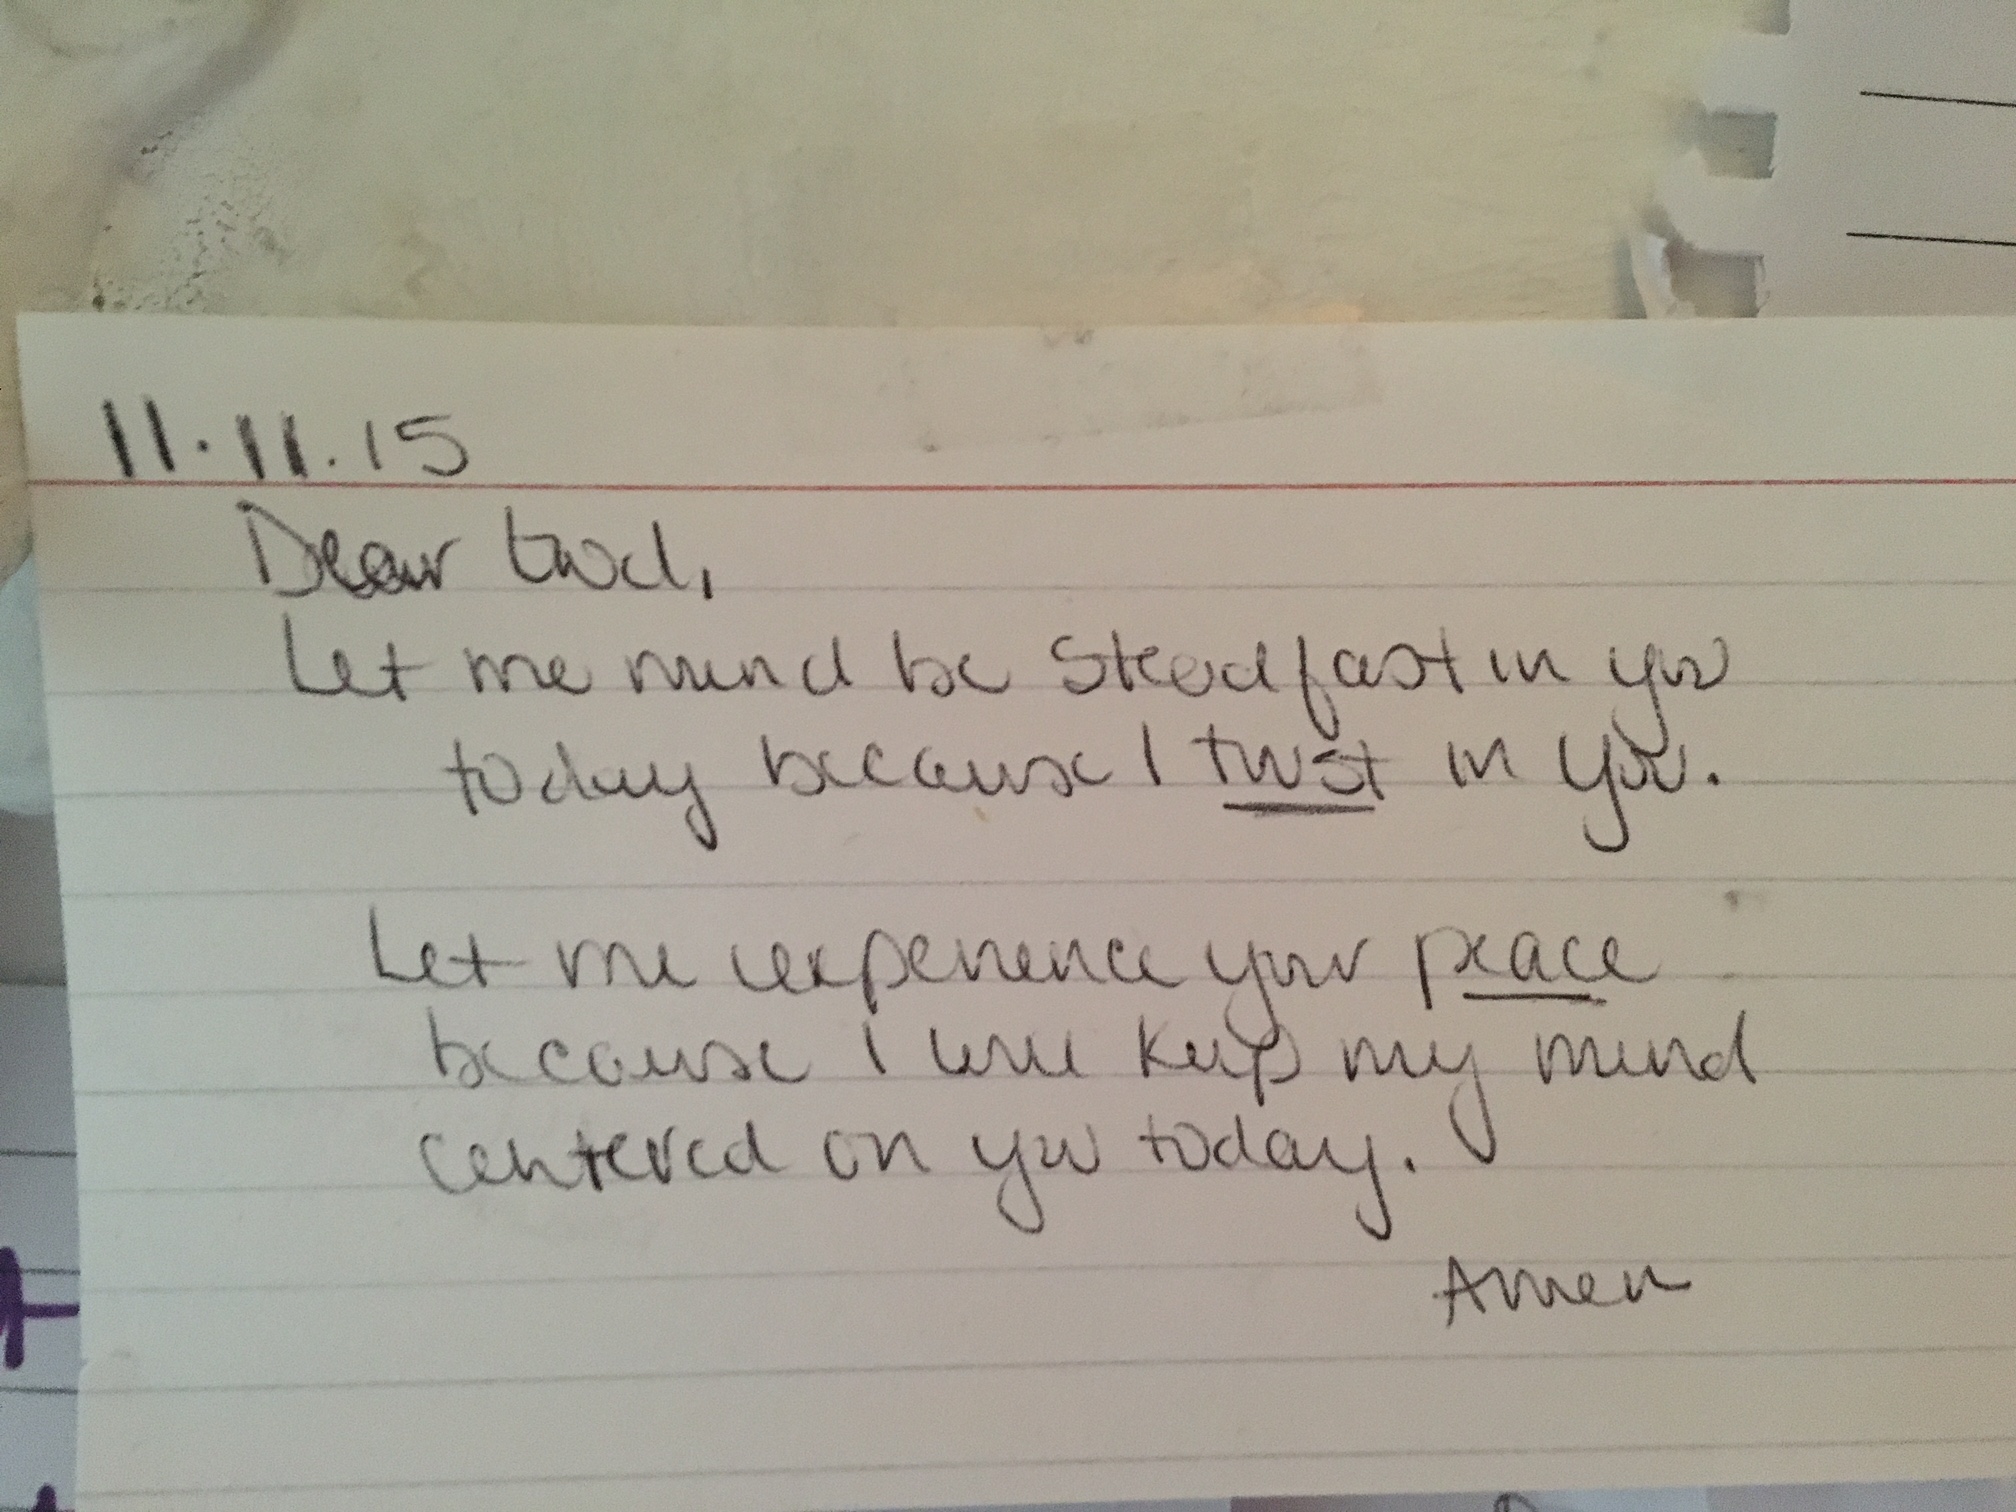 11.11.15
Dear God,
Let me mind be steadfast in you
today because I trust in you.
Let me experience your peace
because I will keep my mind
centered on you today.
Amen